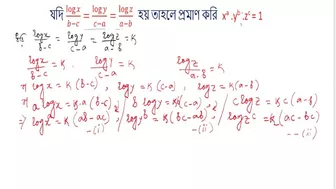 যদি logx/b−c = logy/c−a = logz/a−b হয় তাহলে প্রমাণ করি xᵃ.yᵇ.zᶜ = 1
logx/b−c = logy/c−a = logz/a−b = K
logx/b−c = K, logy/c−a = K, logz/a−b = K
⇒ logx = K(b−c), logy = K(c−a), logz = K(a−b)
⇒ a logx = K.a(b−c) / b logy = Kb(c−a) / c logz = K c(a−b)
⇒ logxᵃ = K(ab−ac) / logyᵇ = K(bc−ab) / logzᶜ = K(ac−bc)
—(i) —(ii) —(iii)